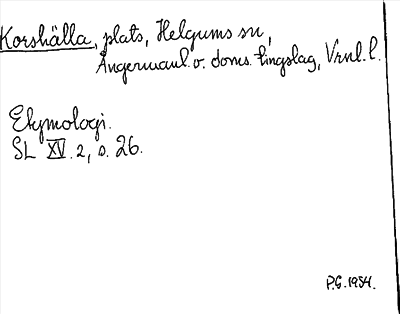 Korshälla, plats, Helgums sn,
Ångermanl. v. doms. tingslag, Vrnl. l.
Etymologi.
SL XV. 2, s. 26.
P.G. 1954.